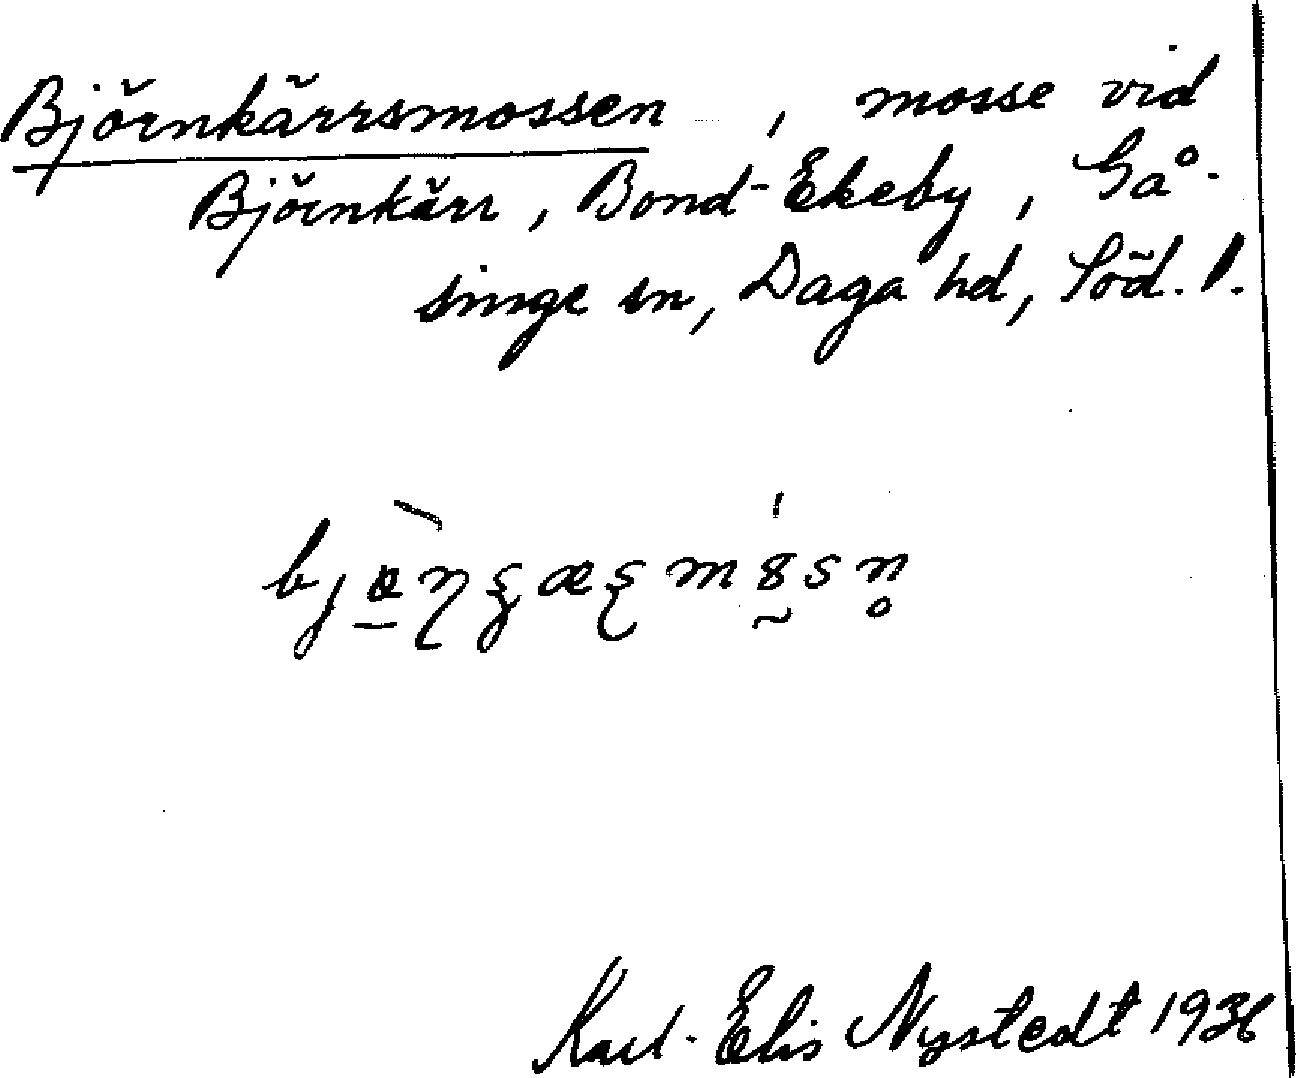 Björnkärrsmossen, mosse vid
Björnkärr, Bond-Ekeby, Gå-
singe sn, Daga hd, Söd. l.
Karl-Elis Nystedt 1936